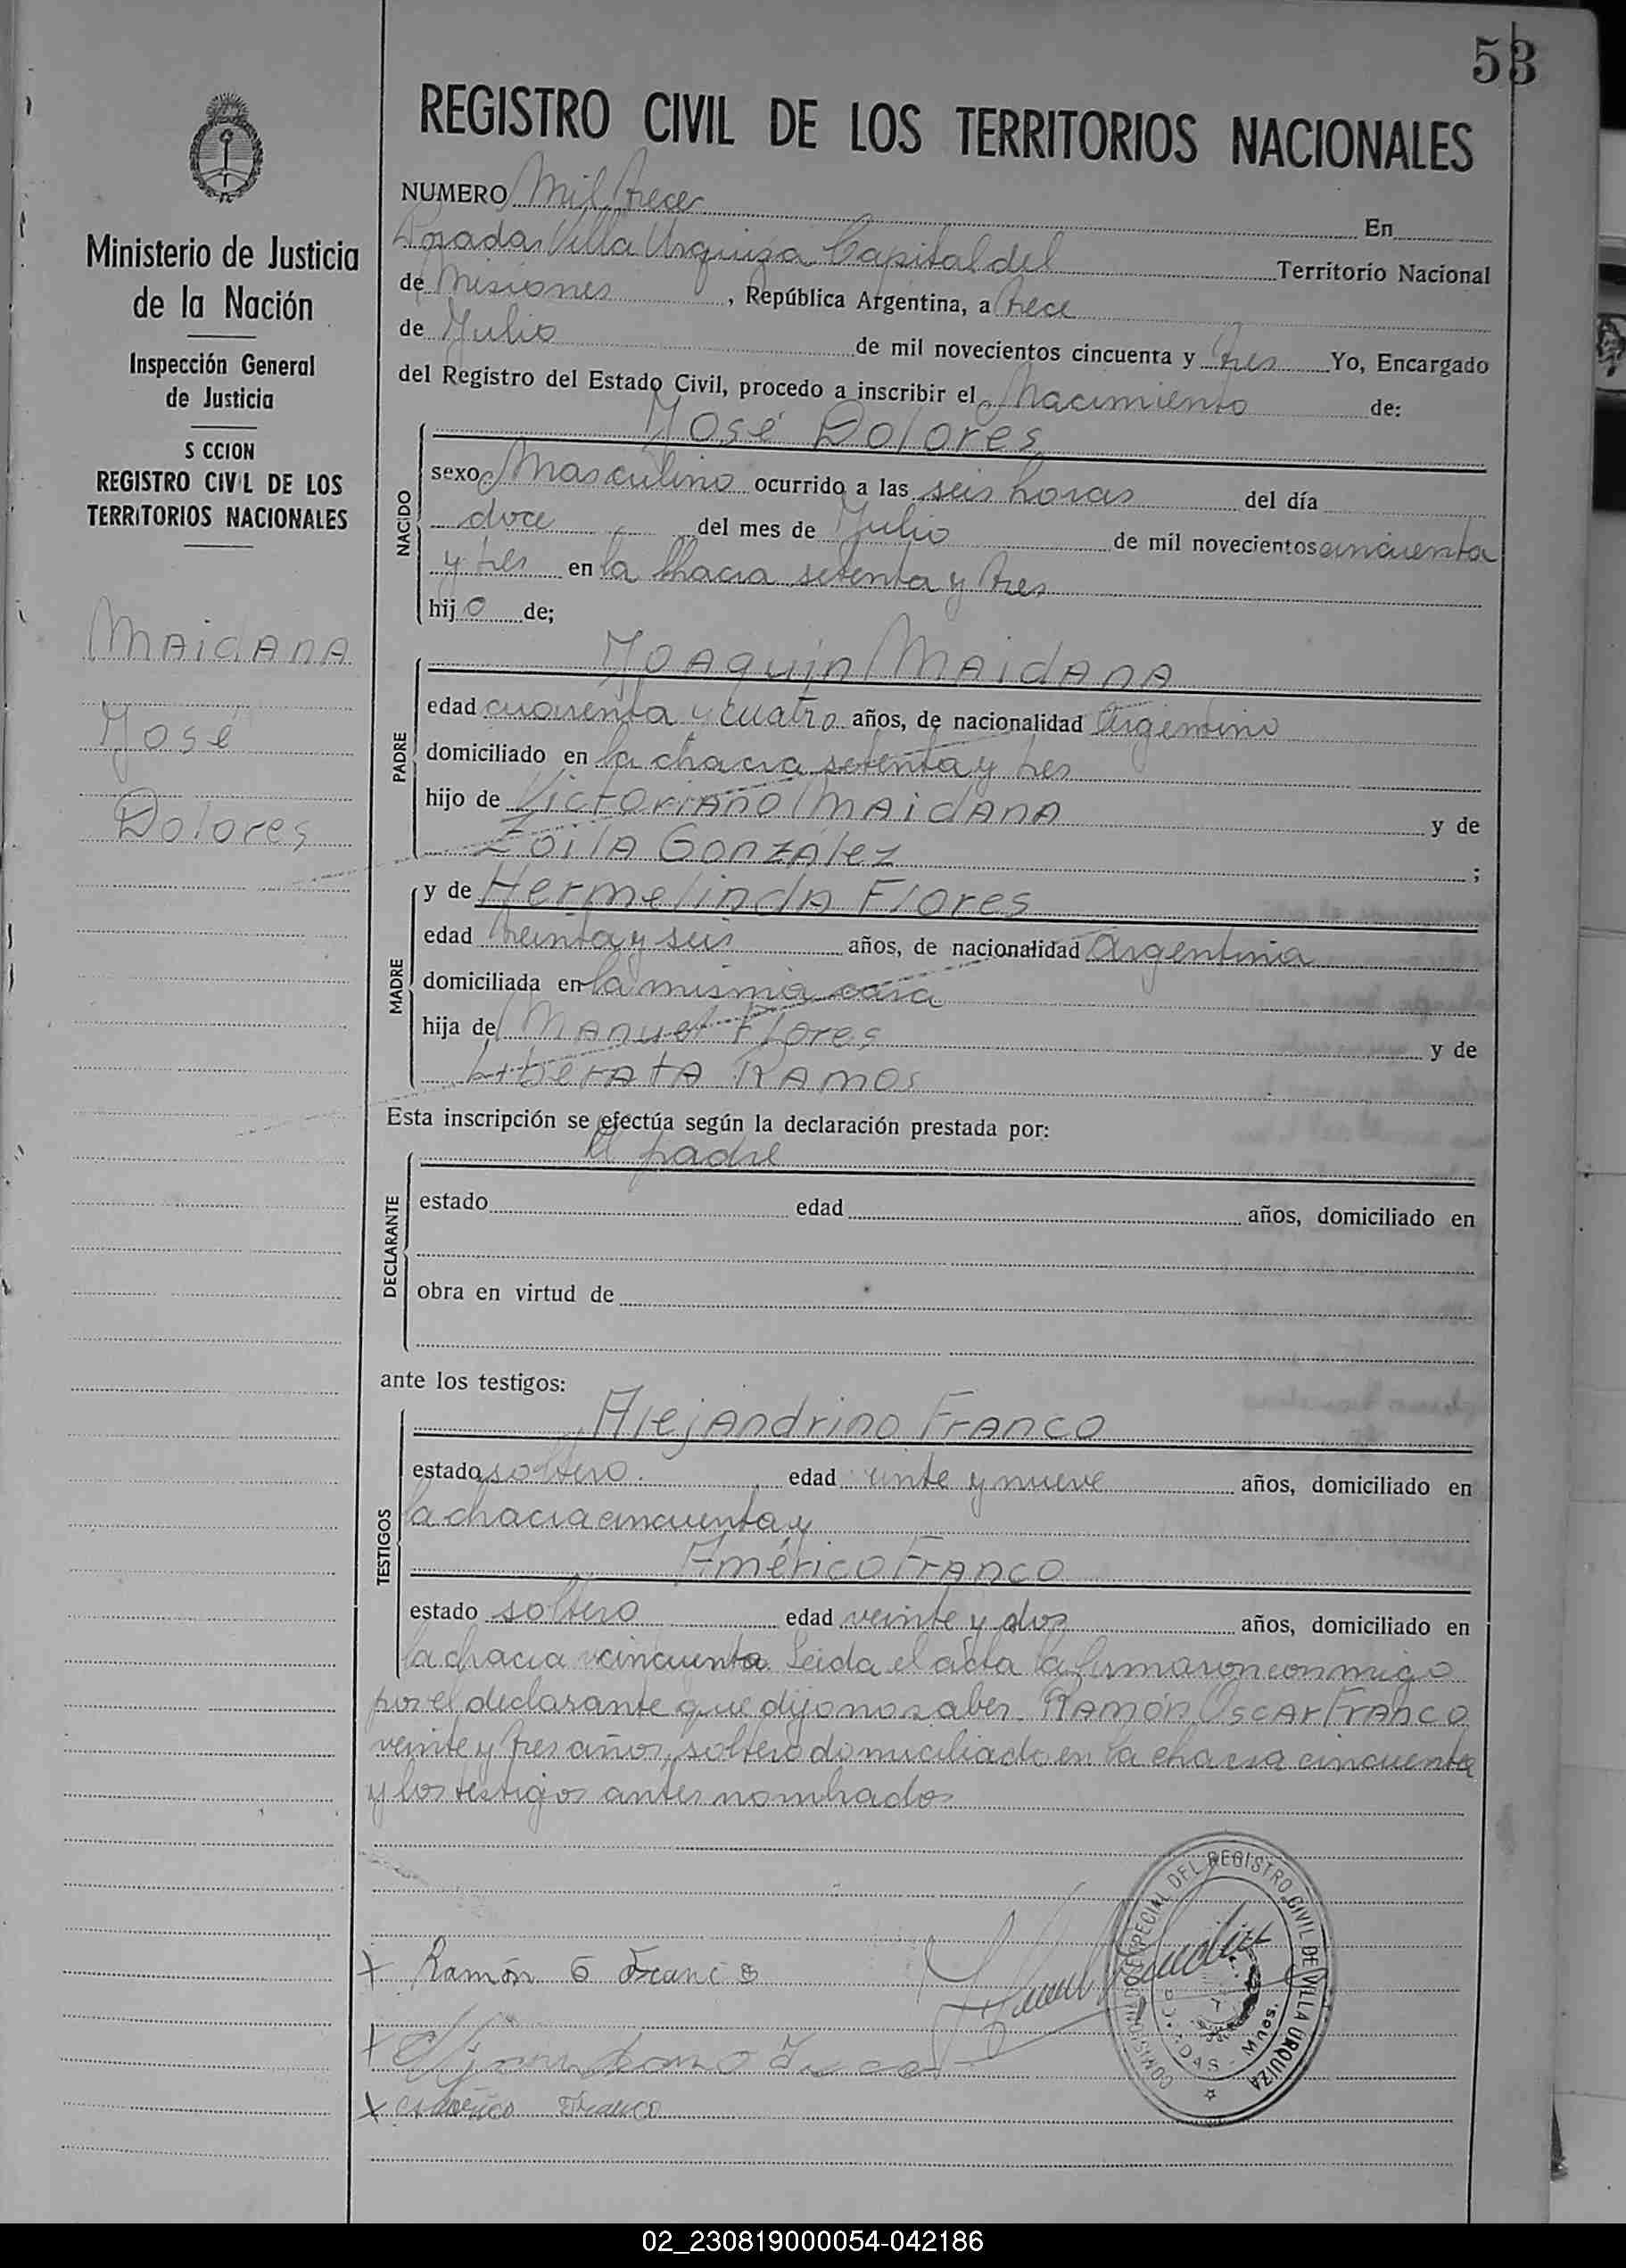 53
REGISTRO CIVIL DE LOS TERRITORIOS NACIONALES
NUMERO Mil trece En
Posadas Villa Urquiza Capital del Territorio Nacional
de Misiones, República Argentina, a trece
de Julio de mil novecientos cincuenta y tres Yo, Encargado
del Registro del Estado Civil, procedo a inscribir el Nacimiento de:
Ministerio de Justicia
de la Nación
Inspección General
de Justicia
S CCION
REGISTRO CIVIL DE LOS
TERRITORIOS NACIONALES
MAidANA
José
Dolores
NACIDO
José Dolores
sexo Masculino ocurrido a las seis horas del día
doce del mes de Julio de mil novecientos cincuenta
y tres en la chacra setenta y tres
hijo de;
PADRE
JOAquín MAidANA
edad cuarenta y cuatro años, de nacionalidad Argentino
domiciliado en la chacra setenta y tres
hijo de VictoriANO MAidANA y de
ZoilA GonzÁlez ;
MADRE
y de HermelindA Flores
edad treinta y seis años, de nacionalidad Argentina
domiciliada en la misma casa
hija de MANuel Flores y de
LiberAtA RAmos
Esta inscripción se efectúa según la declaración prestada por:
DECLARANTE
El padre
estado edad años, domiciliado en
obra en virtud de
ante los testigos:
TESTIGOS
AlejANdrino FrANco
estado soltero edad veinte y nueve años, domiciliado en
la chacra cincuenta y
Américo FrANco
estado soltero edad veinte y dos años, domiciliado en
la chacra cincuenta Leida el acta la firmaron conmigo
por el declarante que dijo no saber RAmón OscAr FrANco
veinte y tres años, soltero domiciliado en la chacra cincuenta
y los testigos antes nombrados
COMISIONADO ESPECIAL DEL REGISTRO CIVIL DE VILLA URQUIZA
DAS - Mnes.
x Ramón O Franco
x
x Américo Franco
02_230819000054-042186